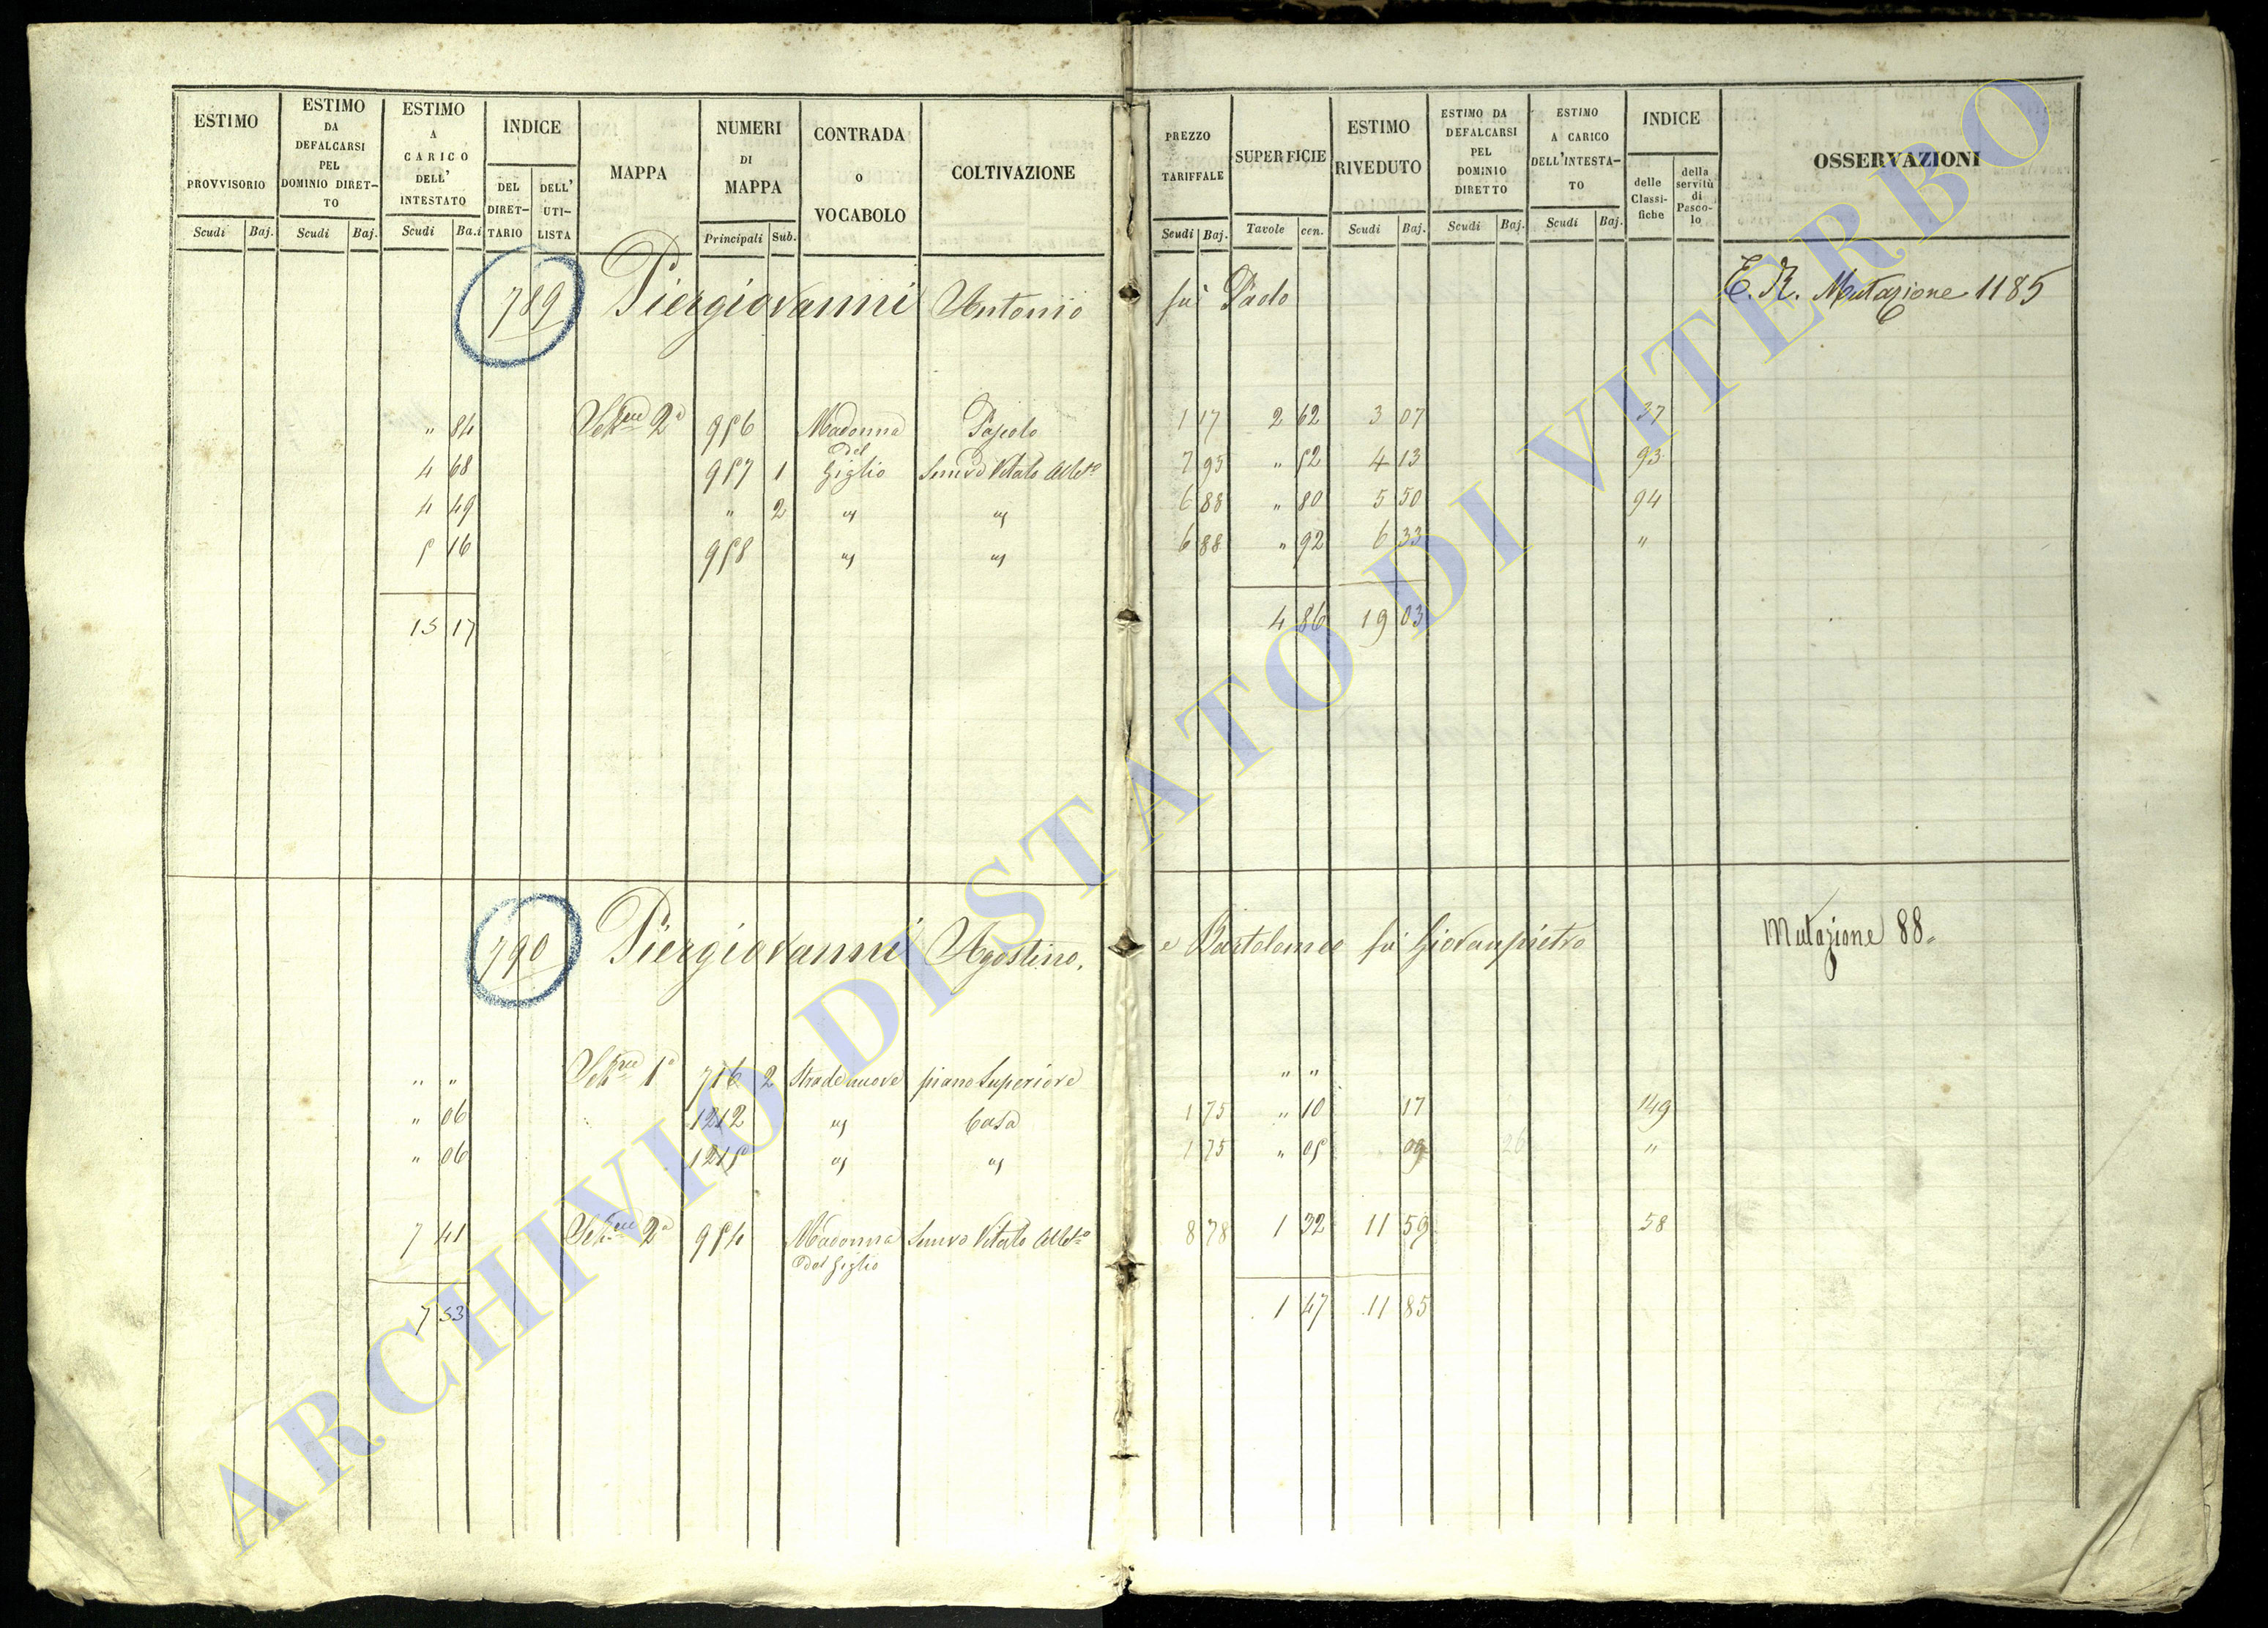 ESTIMO PROVVISORIO Scudi Baj.
ESTIMO DA DEFALCARSI PEL DOMINIO DIRET-TO Scudi Baj.
ESTIMO A CARICO DELL' INTESTATO Scudi Ba.i
INDICE DEL DIRET-TARIO DELL' UTI-LISTA
MAPPA
NUMERI DI MAPPA Principali Sub.
CONTRADA o VOCABOLO
COLTIVAZIONE
PREZZO TARIFFALE Scudi Baj.
SUPERFICIE Tavole cen.
ESTIMO RIVEDUTO Scudi Baj.
ESTIMO DA DEFALCARSI PEL DOMINIO DIRETTO Scudi Baj.
ESTIMO A CARICO DELL'INTESTA-TO Scudi Baj.
INDICE delle Classi-fiche della servitù di Pasco-lo
OSSERVAZIONI
789 Piergiovanni Antonio fu Paolo E. R. Mutazione 1185
" 84 Sezne 2a 956 Madonna Pascolo 1 17 2 62 3 07 37
4 68 957 1 del Giglio Semvo Vitato Albto 7 95 " 52 4 13 93
4 49 " 2 " " 6 88 " 80 5 50 94
5 16 958 " " 6 88 " 92 6 33 "
15 17 4 86 19 03
790 Piergiovanni Agostino, e Bartolomeo fu Giovanpietro Mutazione 88.
" " Sezne 1a 716 2 Strade nuove piano Superiore " "
" 06 1212 " Casa 1 75 " 10 17 149
" 06 1215 " " 1 75 " 05 09 26 "
7 41 Sezne 2a 954 Madonna del Giglio Semvo Vitato Albto 8 78 1 32 11 59 58
7 53 1 47 11 85
ARCHIVIO DI STATO DI VITERBO